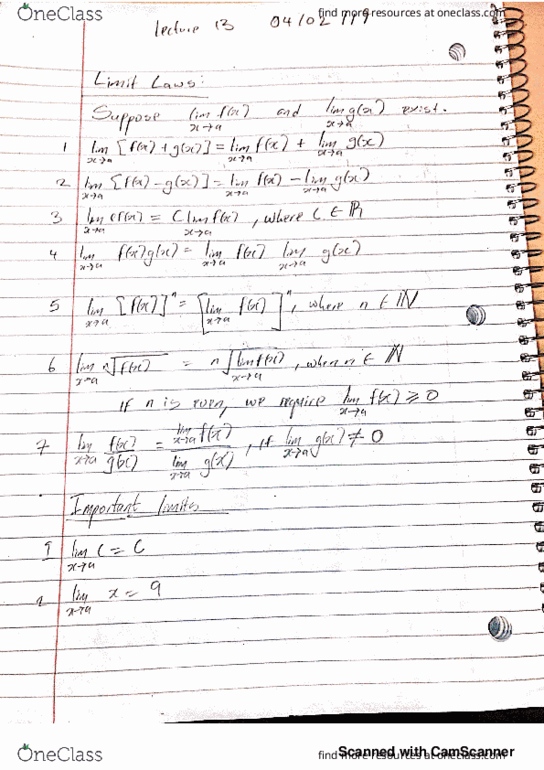 OneClass
find more resources at oneclass.com
lecture 13 04/02/19
Limit Laws:
Suppose lim x→a f(x) and lim x→a g(x) exist.
1 lim x→a [f(x) + g(x)] = lim x→a f(x) + lim x→a g(x)
2 lim x→a [f(x) - g(x)] = lim x→a f(x) - lim x→a g(x)
3 lim x→a cf(x) = C lim x→a f(x), where C ∈ ℝ
4 lim x→a f(x)g(x) = lim x→a f(x) lim x→a g(x)
5 lim x→a [f(x)]^n = [lim x→a f(x)]^n, where n ∈ ℕ
6 lim x→a n√f(x) = n√lim x→a f(x), when n ∈ ℕ
if n is even, we require lim x→a f(x) ≥ 0
7 lim x→a f(x)/g(x) = lim x→a f(x) / lim x→a g(x), if lim x→a g(x) ≠ 0
Important limits
lim x→a C = C
lim x→a x = a
OneClass
find more resources at oneclass.com
Scanned with CamScanner